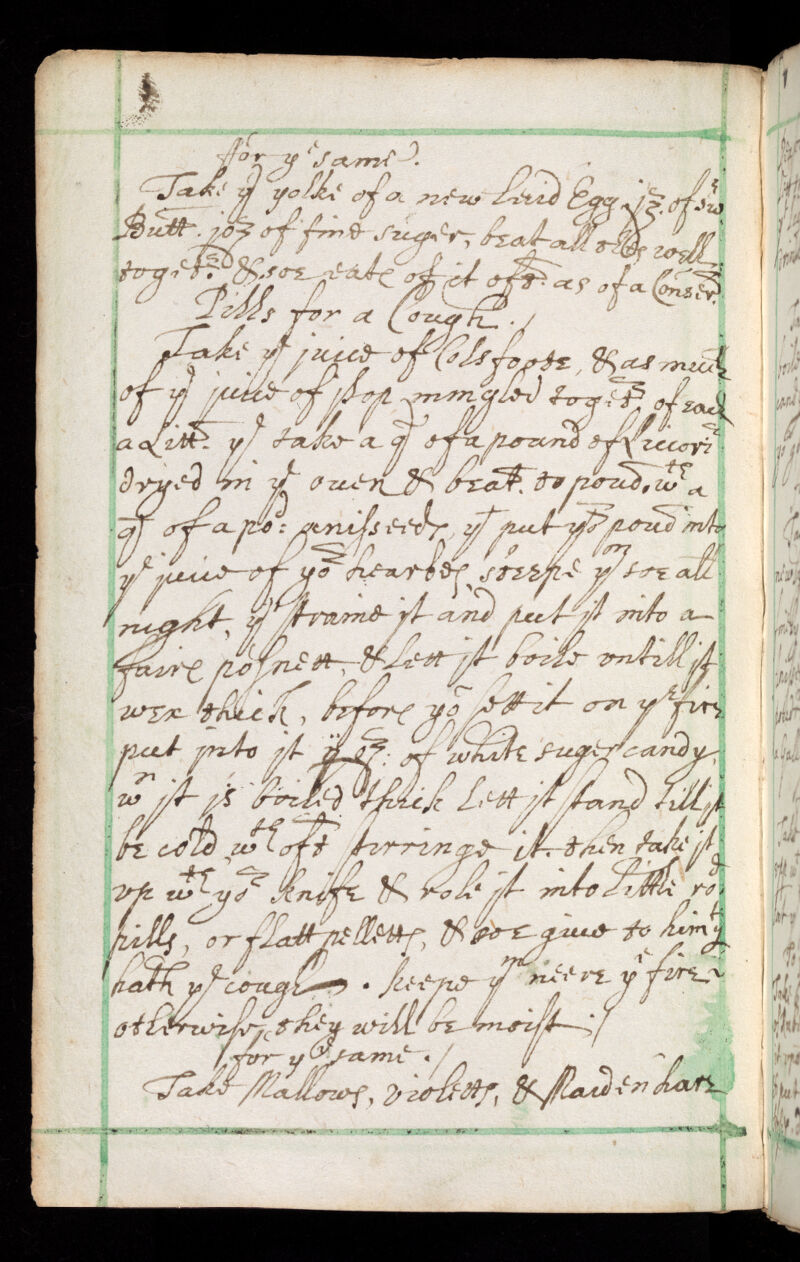 ffor yᵉ same.
Take yᵉ yolke of a new laid Egg, j℥. of sw:
Butt. j℥ of fine suger, beat all well
togetʳ. & soe eate of it oft. as of a Conserᵛ.
Pills for a Cough./
Take yᵉ juice of Colsfoote, & as much
of yᵉ juice of jsop mingled togetʳ of each
a Litt. yⁿ take a qʳ of a pound of Licoris
dryed in yᵉ ouen & beat. to poudʳ. wᵗʰ a
qʳ of a poᵈ: anisseeds, yⁿ put yoʳ poud into
yᵉ juice of yoʳ hearbes, steepe yᵐ soe all
night, yⁿ straine jt and put jt into a
faire posnett, & Lett jt boile vntill jt
wex thick, before yoᵘ sett it on yᵉ fire
put jnto jt ij ℥: of white suger candy,
wⁿ jt js boiled thick Lett jt stand till jt
be cold wᵗʰ oft stirringe it. then take jt
vp wᵗʰ yoʳ knife & role jt into Little roᵈ
pills, or flatt pelletts, & soe giue to him yᵗ
hath yᵉ cough. keepe yᵐ neere yᵉ fire
otherwise they will be moist./
for yᵉ same./
Take Mallows, violetts, & Maidenhare